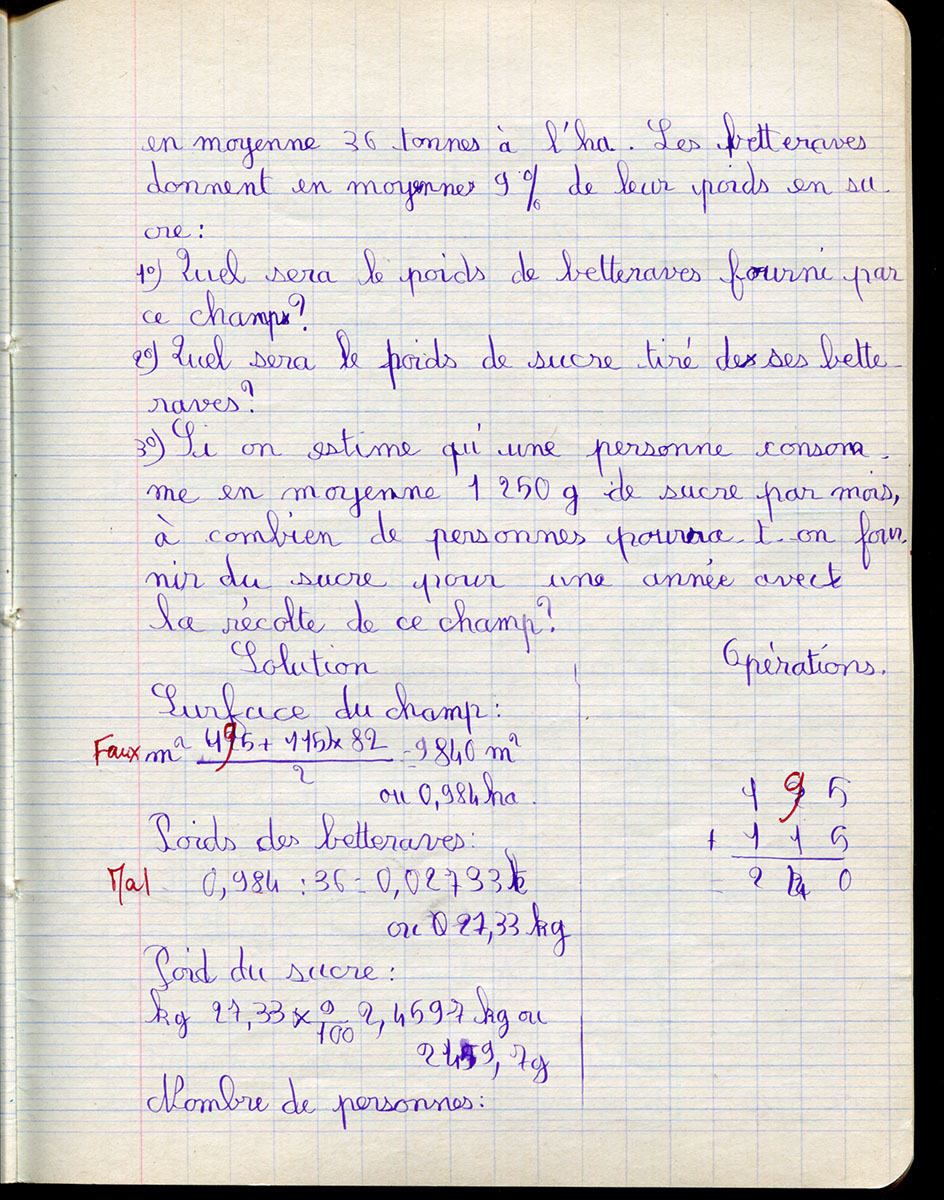 en moyenne 36 tonnes à l'ha. Les betteraves
donnent en moyenne 9% de leur poids en su-
cre :
1º) Quel sera le poids de betteraves fourni par
ce champ?
2º) Quel sera le poids de sucre tiré de ses bette-
raves?
3º) Si on estime qu'une personne consom-
me en moyenne 1 250 g de sucre par mois,
à combien de personnes pourra-t-on four-
nir du sucre pour une année avec
la récolte de ce champ?
Solution
Opérations.
Surface du champ:
Faux m² (195 + 115) x 82 / 2 = 9840 m²
ou 0,984 ha.
195
+ 115
= 240
Poids des betteraves:
Mal 0,984 : 36 = 0,02733 t
ou 27,33 kg
Poid du sucre :
kg 27,33 x 9/100 2,4597 kg ou
2459,7g
Nombre de personnes: